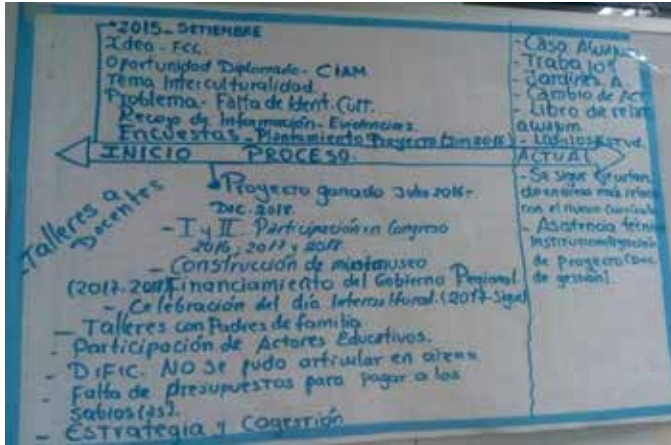 *2015- SETIEMBRE
Idea - FCC
Oportunidad Diplomado - CIAM
Tema Interculturalidad.
Problema - Falta de Ident. Cult.
Recojo de Información - Evidencias.
Encuestas - Proyecto
INICIO PROCESO. ACTUAL
Proyecto ganado Julio 2016-
Dic. 2018.
- I y II Participación en Congreso
2016, 2017 y 2018
- Construcción de
Financiamiento del Gobierno Regional.
- Celebración del día Intercultural. (2017-Sigue)
- Talleres con Padres de familia
- Participación de Actores Educativos.
- DIFIC. NO se pudo articular en
- Falta de presupuestos para pagar a los
Sabios(as).
- Estrategia y Cogestión
-Talleres a
Docentes
- Casa
- Trabajos
- Jardines A.
- Cambio de ACT
- Libro de relat.
awajun.
- Se sigue
más
con el nuevo
- Asistencia técnica
de Proyecto (Doc.
de gestión).